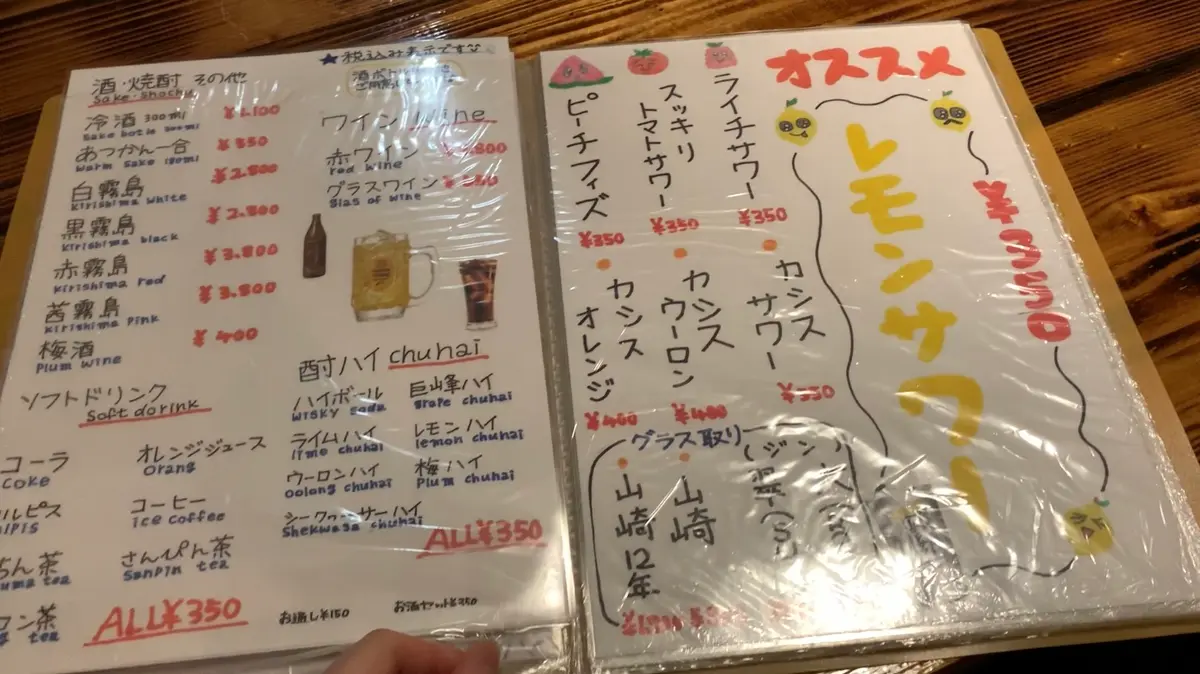 ★税込み表示です
酒・焼酎 その他
Sake・Shochu
冷酒 300ml ¥1,100
Sake botle 300ml
あつかん一合 ¥550
Warm Sake 180ml
白霧島 ¥2.800
Kirishima White
黒霧島 ¥2.800
Kirishima black
赤霧島 ¥3.800
Kirishima red
茜霧島 ¥3.800
Kirishima Pink
梅酒 ¥400
Plum wine
ワイン wine
赤ワイン
red wine
グラスワイン
glas of wine
酎ハイ chuhai
ハイボール
wisky soda
巨峰ハイ
grape chuhai
ライムハイ
lime chuhai
レモンハイ
lemon chuhai
ウーロンハイ
oolong chuhai
梅ハイ
Plum chuhai
シークヮーサーハイ
Shekwasa chuhai
ALL¥350
ソフトドリンク
Soft dorink
コーラ
coke
オレンジジュース
Orang
ルピス
lpis
コーヒー
ice coffee
ちん茶
uma tea
さんぴん茶
Sanpin tea
ロン茶
tea
ALL¥350
お通し¥150
お酒セット¥350
オススメ
レモンサワー
ライチサワー
¥350
スッキリ
トマトサワー
¥350
ピーチフィズ
¥350
カシス
サワー
カシス
ウーロン
¥400
カシス
オレンジ
¥400
グラス取り
山崎
山崎12年